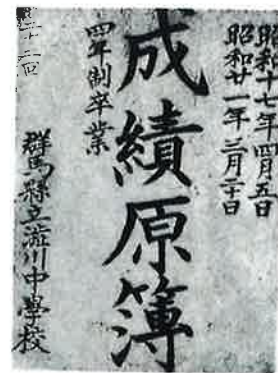 昭和十七年四月五日
昭和廿一年三月二十日
成績原簿
四年制卒業
第二十二回
群馬縣立澁川中學校